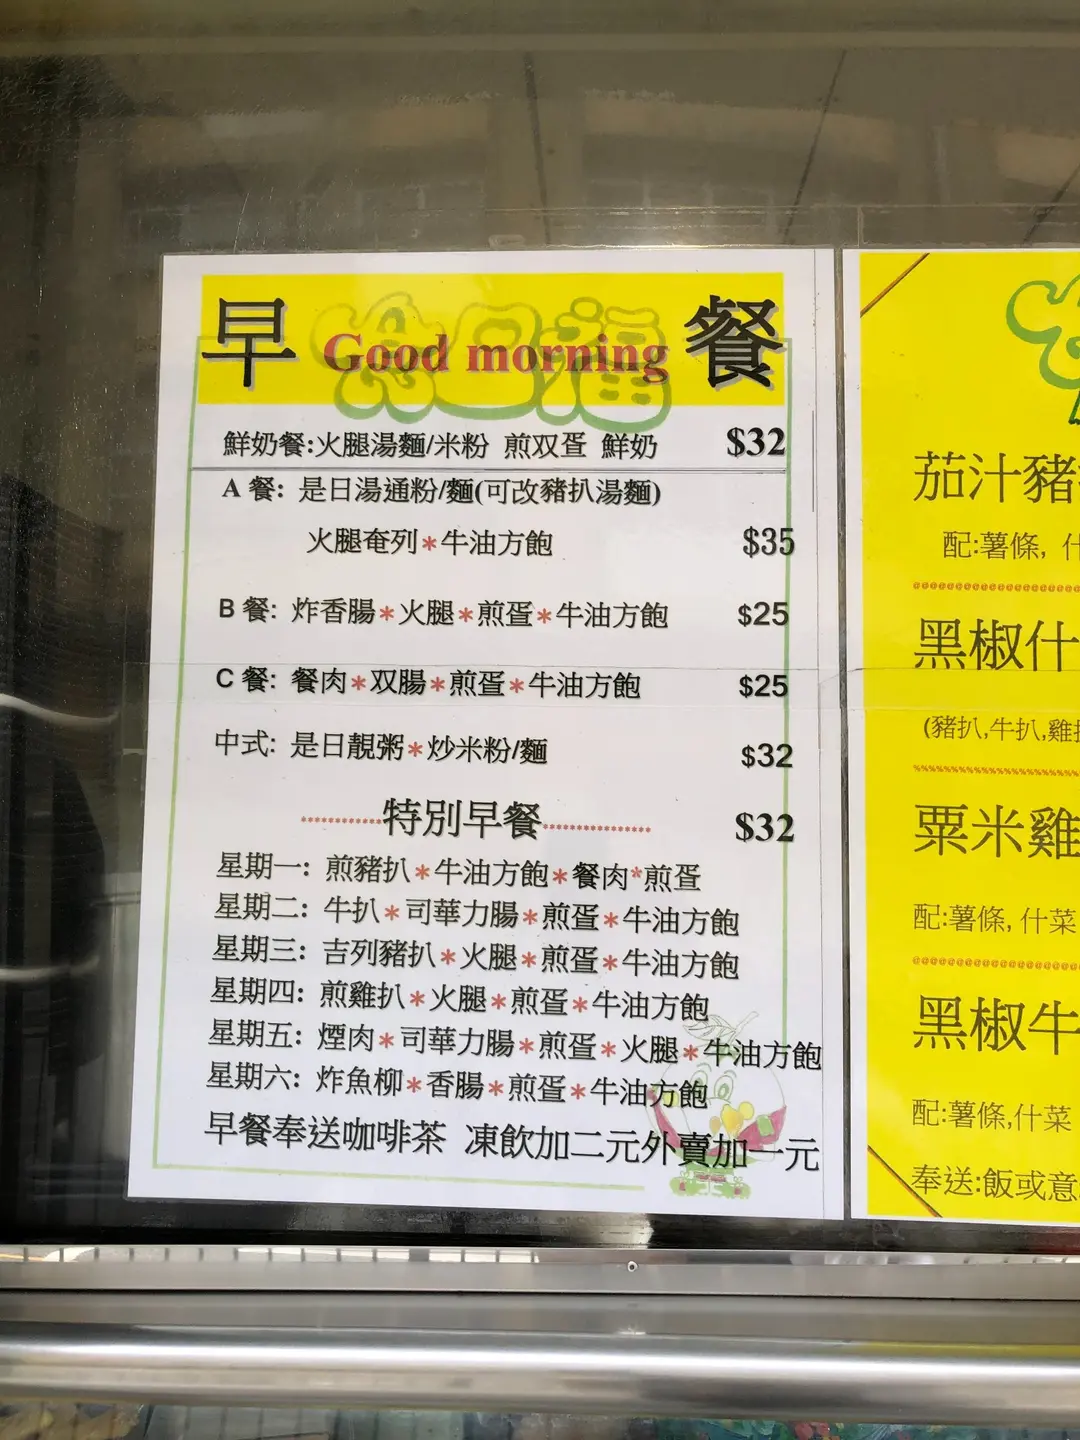 早 Good morning 餐
鮮奶餐:火腿湯麵/米粉 煎双蛋 鮮奶 $32
A 餐: 是日湯通粉/麵(可改豬扒湯麵)
火腿奄列*牛油方飽 $35
B 餐: 炸香腸*火腿*煎蛋*牛油方飽 $25
C 餐: 餐肉*双腸*煎蛋*牛油方飽 $25
中式: 是日靚粥*炒米粉/麵 $32
特別早餐 $32
星期一: 煎豬扒*牛油方飽*餐肉*煎蛋
星期二: 牛扒*司華力腸*煎蛋*牛油方飽
星期三: 吉列豬扒*火腿*煎蛋*牛油方飽
星期四: 煎雞扒*火腿*煎蛋*牛油方飽
星期五: 煙肉*司華力腸*煎蛋*火腿*牛油方飽
星期六: 炸魚柳*香腸*煎蛋*牛油方飽
早餐奉送咖啡茶 凍飲加二元外賣加一元
茄汁豬
配:薯條, 什
黑椒什
(豬扒,牛扒,雞扒
粟米雞
配:薯條, 什菜
黑椒牛
配:薯條,什菜
奉送:飯或意